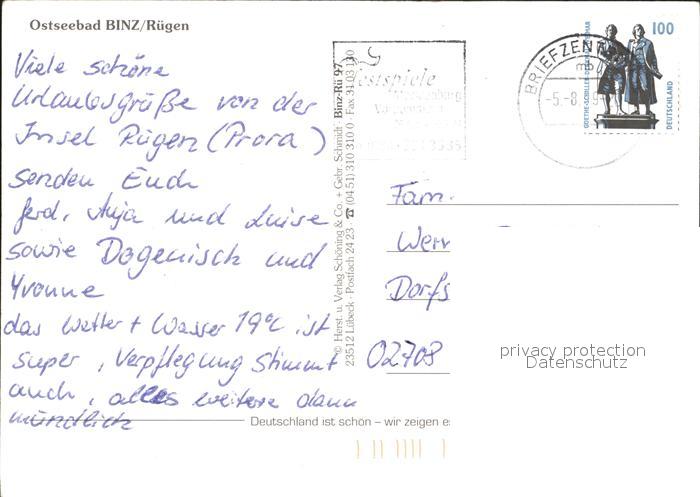 Ostseebad BINZ/Rügen
Viele schöne
Urlaubsgrüße von der
Insel Rügen (Prora)
senden Euch
Gerd, Anja und Luise
sowie Dagenisch und
Yvonne
das Wetter + Wasser 19°C ist
super, Verpflegung stimmt
auch, alles weitere dann
mündlich
© Herst. u. Verlag Schöning & Co. + Gebr. Schmidt · Binz-Rü 97
23512 Lübeck · Postfach 24 23 · ☎ (04 51) 310 310 0 · Fax
Deutschland ist schön – wir zeigen e
estspiele
BRIEFZEN
-5.-8.
GOETHE-SCHILLER-DENKMAL
100
DEUTSCHLAND
Fam.
Wer
Dorfs
02708
privacy protection
Datenschutz